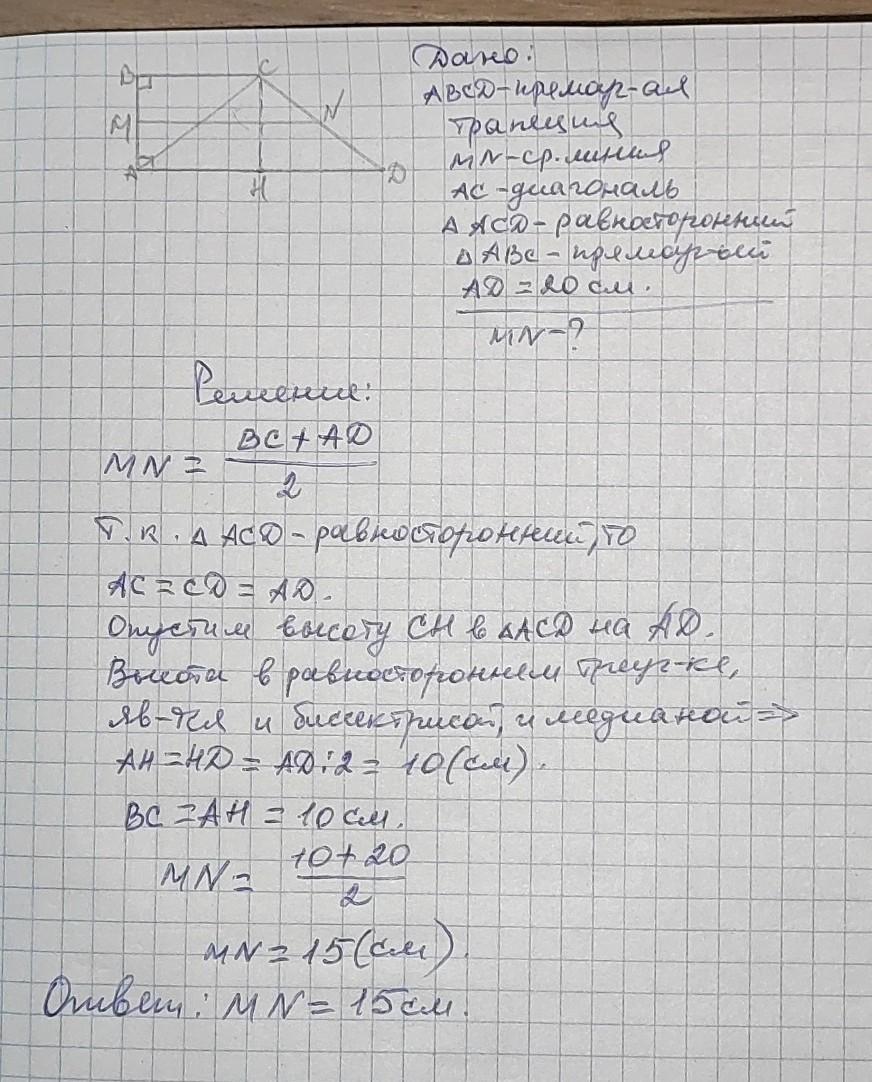 B
C
M
N
A
H
D
Дано:
ABCD-прямоуг-ая
трапеция
MN-ср.линия
AC-диагональ
△ ACD-равносторонний
△ ABC-прямоуг-ый
AD = 20 см.
MN-?
Решение:
MN = BC + AD / 2
Т.к. △ ACD-равносторонний, то
AC = CD = AD.
Опустим высоту CH в △ACD на AD.
Высота в равностороннем треуг-ке,
яв-тся и биссектрисой, и медианой =>
AH = HD = AD:2 = 10(см).
BC = AH = 10 см.
MN = 10 + 20 / 2
MN = 15(см).
Ответ: MN = 15 см.